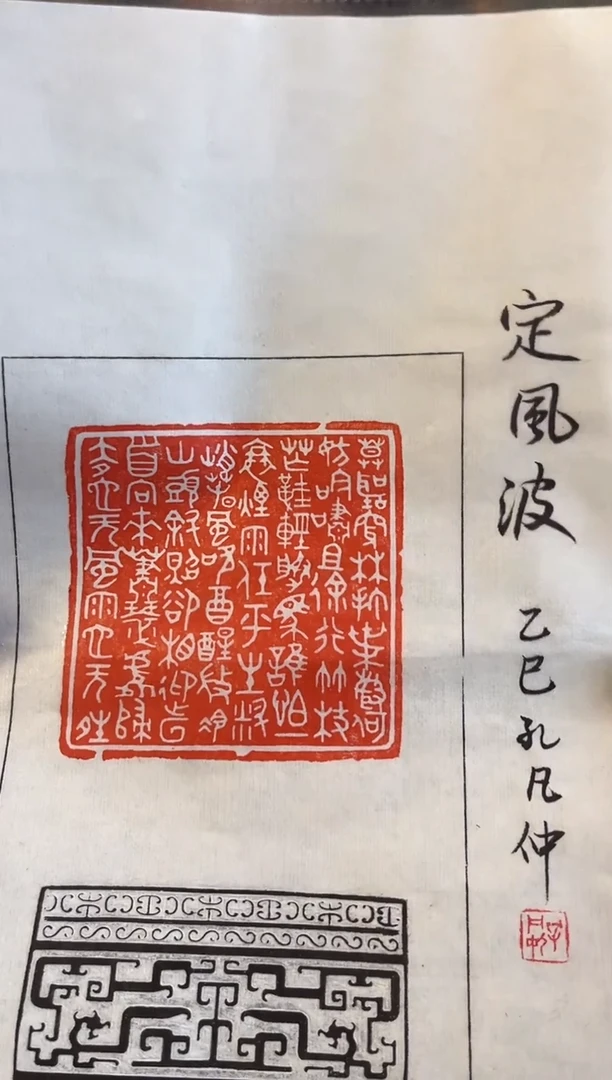 定風波 乙巳孔凡仲
莫聽穿林打葉聲何
妨吟嘯且徐行竹杖
芒鞋輕勝馬誰怕一
蓑煙雨任平生料
峭春風吹酒醒微冷
山頭斜照卻相迎回
首向來蕭瑟處歸
去也無風雨也無晴